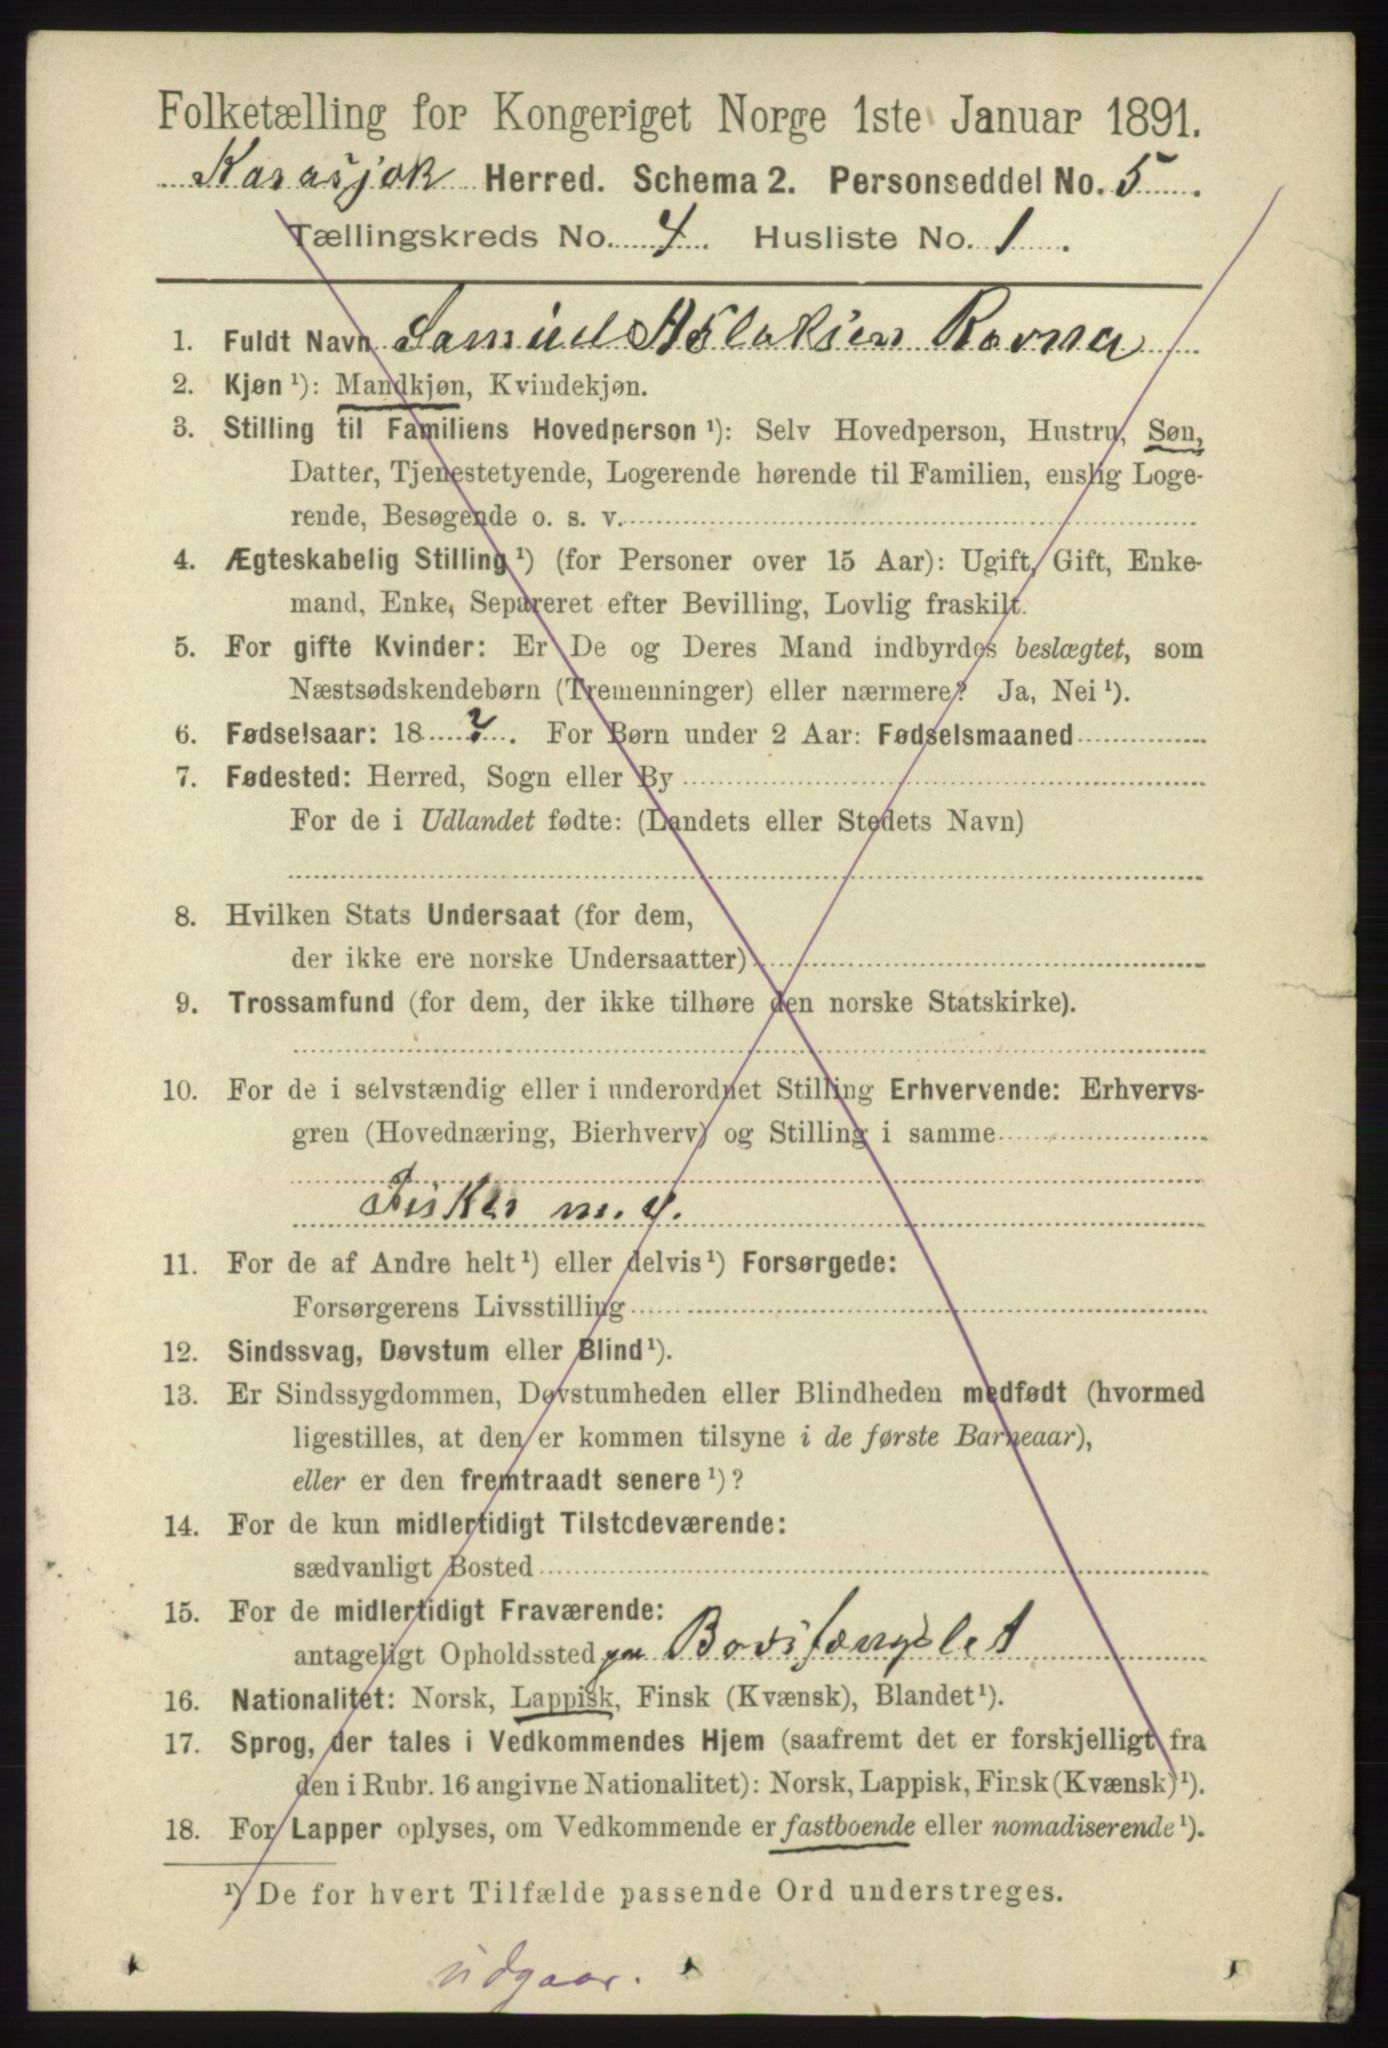 Folketælling for Kongeriget Norge 1ste Januar 1891.
Karasjok Herred. Schema 2. Personseddel No. 5.
Tællingskreds No. 4. Husliste No. 1.
1. Fuldt Navn Samuel Aslaksen Ravna
2. Kjøn ¹): Mandkjøn, Kvindekjøn.
3. Stilling til Familiens Hovedperson ¹): Selv Hovedperson, Hustru, Søn,
Datter, Tjenestetyende, Logerende hørende til Familien, enslig Loge-
rende, Besøgende o. s. v.
4. Ægteskabelig Stilling ¹) (for Personer over 15 Aar): Ugift, Gift, Enke-
mand, Enke, Separeret efter Bevilling, Lovlig fraskilt.
5. For gifte Kvinder: Er De og Deres Mand indbyrdes beslægtet, som
Næstsødskendebørn (Tremenninger) eller nærmere? Ja, Nei ¹).
6. Fødselsaar: 18 ?. For Børn under 2 Aar: Fødselsmaaned
7. Fødested: Herred, Sogn eller By
For de i Udlandet fødte: (Landets eller Stedets Navn)
8. Hvilken Stats Undersaat (for dem,
der ikke ere norske Undersaatter)
9. Trossamfund (for dem, der ikke tilhøre den norske Statskirke).
10. For de i selvstændig eller i underordnet Stilling Erhvervende: Erhvervs-
gren (Hovednæring, Bierhverv) og Stilling i samme
Fisker m.
11. For de af Andre helt ¹) eller delvis ¹) Forsørgede:
Forsørgerens Livsstilling
12. Sindssvag, Døvstum eller Blind ¹).
13. Er Sindssygdommen, Døvstumheden eller Blindheden medfødt (hvormed
ligestilles, at den er kommen tilsyne i de første Barneaar),
eller er den fremtraadt senere ¹)?
14. For de kun midlertidigt Tilstedeværende:
sædvanligt Bosted
15. For de midlertidigt Fraværende:
antageligt Opholdssted paa Bodsfængslet
16. Nationalitet: Norsk, Lappisk, Finsk (Kvænsk), Blandet ¹).
17. Sprog, der tales i Vedkommendes Hjem (saafremt det er forskjelligt fra
den i Rubr. 16 angivne Nationalitet): Norsk, Lappisk, Finsk (Kvænsk) ¹).
18. For Lapper oplyses, om Vedkommende er fastboende eller nomadiserende ¹).
¹) De for hvert Tilfælde passende Ord understreges.
udgaar.